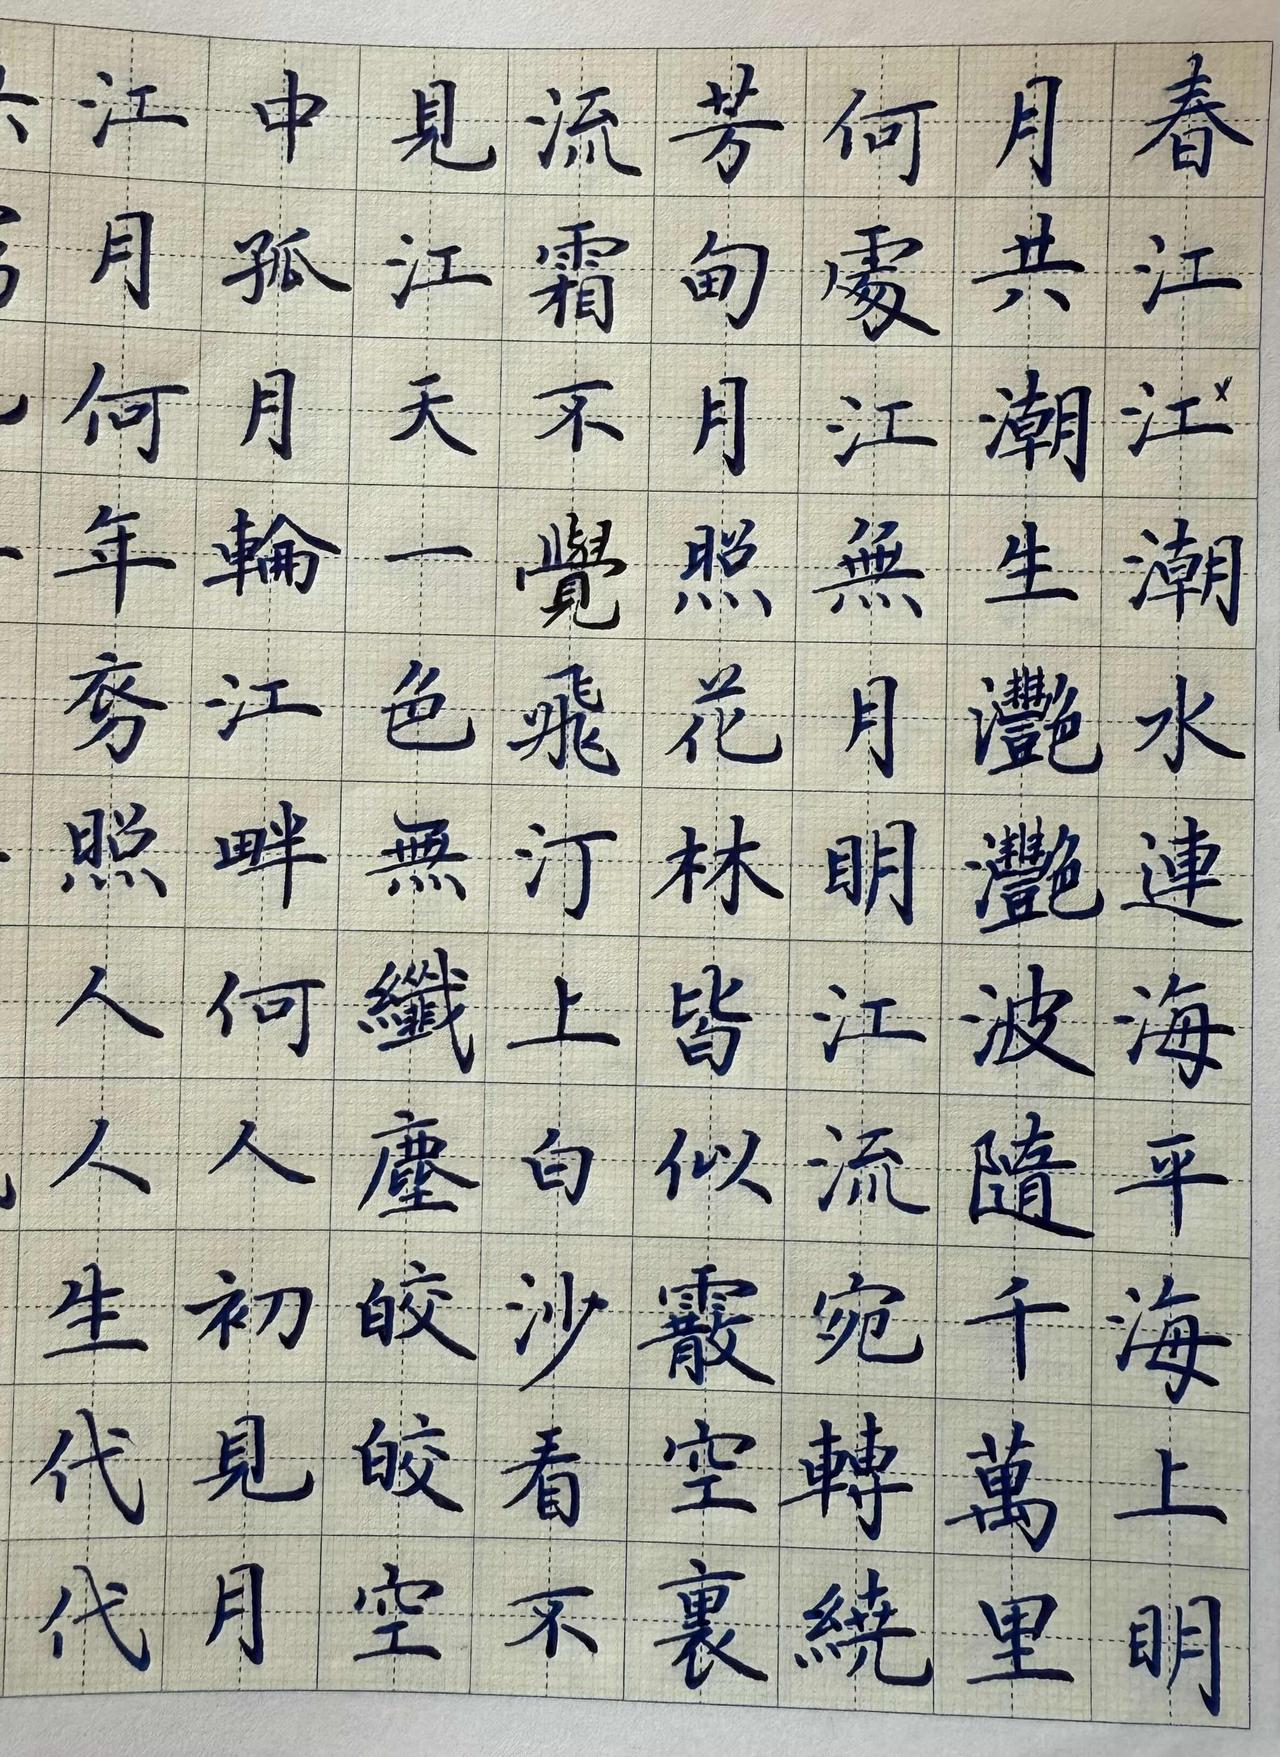 春江江潮水連海平海上明
月共潮生灩灩波隨千萬里
何處江無月明江流宛轉繞
芳甸月照花林皆似霰空裏
流霜不覺飛汀上白沙看不
見江天一色無纖塵皎皎空
中孤月輪江畔何人初見月
江月何年初照人人生代代